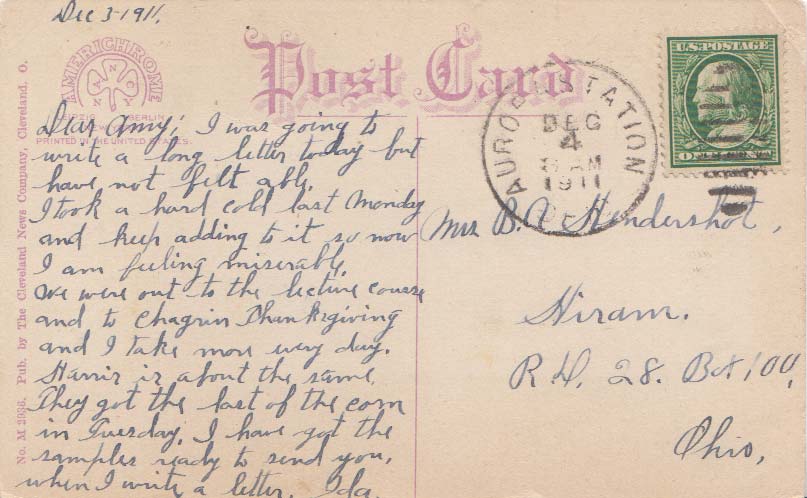 Dec 3-1911,
AMERICHROME
NYNC
LEIPZIG BERLIN
NEW YORK
PRINTED IN THE UNITED STATES.
Post Card
U.S. POSTAGE
AURORA STATION
DEC
4
AM
1911
No. M 2936. Pub. by The Cleveland News Company, Cleveland, O.
Dear Amy; I was going to
write a long letter today but
have not felt able.
I took a hard cold last Monday
and keep adding to it so now
I am feeling miserable,
We were out to the lecture course
and to Chagrin Thanksgiving
and I take more every day.
Harris is about the same,
They got the last of the corn
in Tuesday, I have got the
samples ready to send you,
when I write a letter. Ida.
Mrs B. Hendershot,
Hiram.
R.D. 28. Box 100,
Ohio,